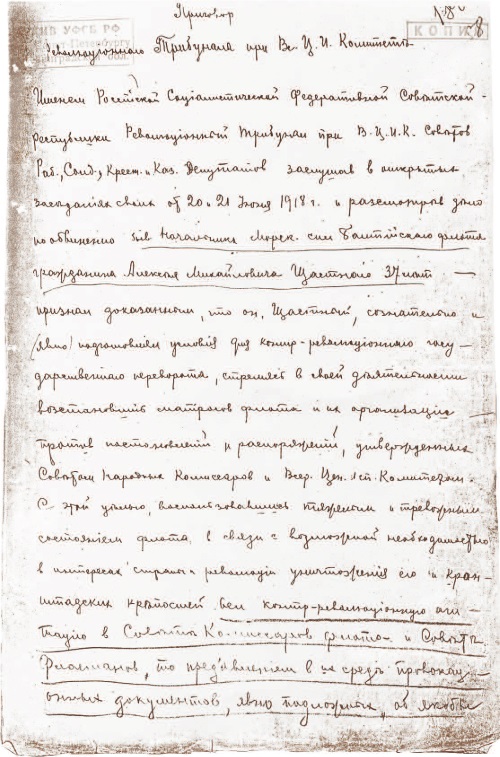 Приговор
АРХИВ УФСБ РФ
КОПИЯ
Революціоннаго Трибунала при Вс. Ц. И. Комитетѣ
Именем Российской Соціалистической Федеративной Совѣтской
Республики Революціонный Трибунал при В.Ц.И.К. Совѣтов
Раб., Солд., Крест. и Каз. Депутатов заслушав в открытых
засѣданіях своих от 20 и 21 Іюня 1918 г. и разсмотрев дѣло
по обвинению быв. Начальника Морск. сил Балтійскаго флота
гражданина Алексея Михайловича Щастнаго 37 лѣт —
признал доказанным, что он, Щастный, сознательно и
явно подготовлял условія для контр-революціоннаго госу-
дарственнаго переворота, стремясь в своей дѣятельности
возстановить матросов флота и их организации —
против постановленій и распоряженій, утвержденных
Совѣтом Народных Комиссаров и Всер. Цен. Исп. Комитетом.
С этой цѣлью, воспользовавшись тяжелым и тревожным
состояніем флота, в связи с возможной необходимостью
в интересах революціи уничтоженія его и крон-
штадских крѣпостей, вел контр-революціонную аги-
тацію в Совѣтѣ Комиссаров флота и в Совѣтѣ
Флагманов, то предъявленіем в их средѣ провокаці-
онных документов, явно подложных, об якобы